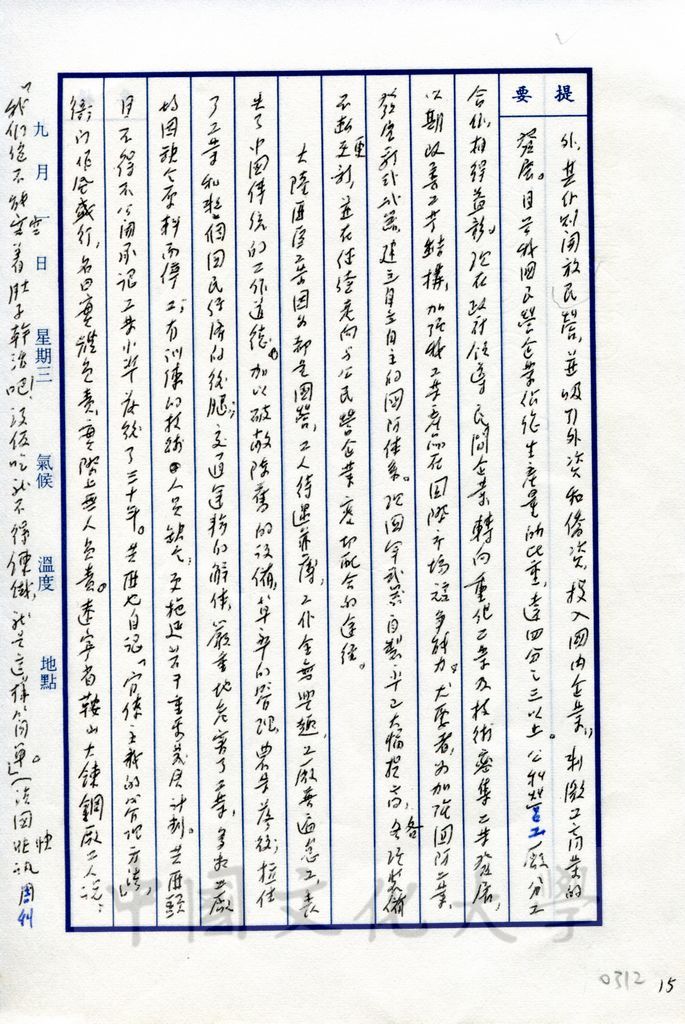 提要
外。其什計開放民營，並吸引外資和僑資，投入國內企業，刺激工商業的
發展。目前我國民營企業佔總生產量的比重，達四分之三以上。公私營工廠分工
合作，相得益彰。現在政府領導民間企業轉向重化工業及技術密集工業發展，
以期改善工業結構，加強我工業產品在國際市場競爭能力。尤要者，為加強國防工業
發展新式武器，建立自立自主的國防體系。現國軍武器自製率已大幅提高，各項裝備
不斷更新，並在繼續走向與公民營企業密切配合的途徑。
大陸匪區工業因為都是國營，工人待遇菲薄，工作全無興趣，工廠普遍怠工，喪
失了中國傳統的工作道德。加以破敝陳舊的設備，草率的管理，農業落後，拉住
了工業和整個國民經濟的後腿；交通運輸的解體，嚴重地危害了工業，多數工廠
均因缺乏原料而停工；有訓練的技術人員缺乏，更拖延若干重要發展計劃。共匪頭
目不得不公開承認工業水準落後了三十年。共匪也自認「官僚主義的管理方法」，
衙門作風盛行，名曰集體負責，實際上無人負責。遼寧省鞍山大鍊鋼廠工人說：
「我們總不能空着肚子幹活吧！沒飯吃就不得鍊鐵，就是這樣簡單。」（法國快訊周刊
九月一日 星期三 氣候 溫度 地點
中國文化大學
0312 15